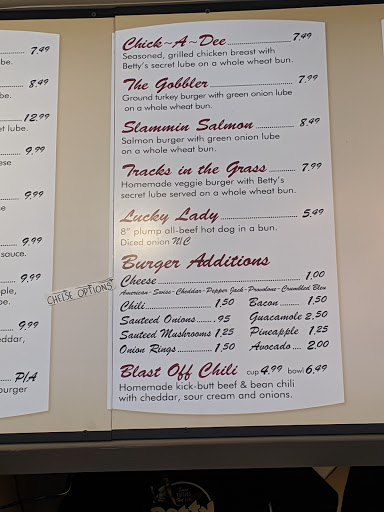 7.49
be.
8.49
be.
12.99
et lube.
9.99
ese
9.99
e
9.99
sauce.
9.99
ple,
be.
9.99
eddar,
P/A
burger
CHEESE OPTIONS
Chick~A~Dee 7.49
Seasoned, grilled chicken breast with
Betty's secret lube on a whole wheat bun.
The Gobbler 7.99
Ground turkey burger with green onion lube
on a whole wheat bun.
Slammin Salmon 8.49
Salmon burger with green onion lube
on a whole wheat bun.
Tracks in the Grass 7.99
Homemade veggie burger with Betty's
secret lube served on a whole wheat bun.
Lucky Lady 5.49
8" plump all-beef hot dog in a bun.
Diced onion N/C
Burger Additions
Cheese 1.00
American-Swiss-Cheddar-Pepper Jack-Provolone-Crumbled Bleu
Chili 1.50 Bacon 1.50
Sauteed Onions .95 Guacamole 2.50
Sauteed Mushrooms 1.25 Pineapple 1.25
Onion Rings 1.50 Avocado 2.00
Blast Off Chili cup 4.99 bowl 6.49
Homemade kick-butt beef & bean chili
with cheddar, sour cream and onions.